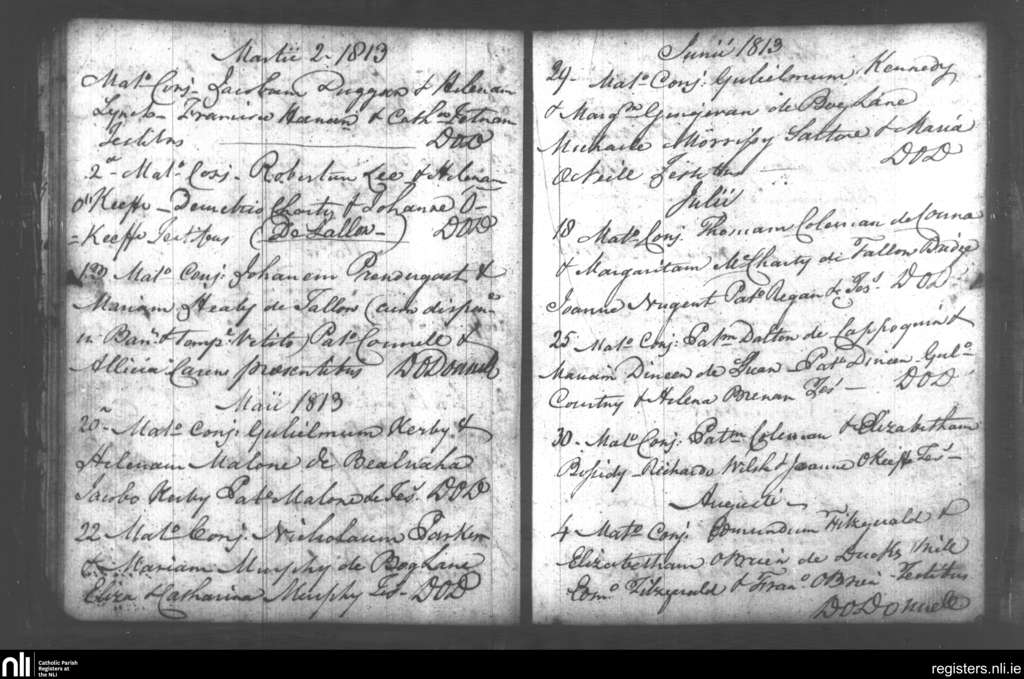 Martii 2 - 1813
Mato. Conj. Jacobum Duggan & Helenam
Lynch - Francisco & Cathna.
Testibus DOD
2a - Mato. Conj. Robertum Lee & Helenam
O'Keeffe - Demetrio Charty & Johanne O-
=Keeffe Testibus (De Tallow -) DOD
Mato. Conj. Johanem Prendergast &
Mariam Healy de Tallow (cum dispen
in Ban. & Temp. Vetito) Pato. Connell &
Allicia Caren presentibus DODonnell
Maii 1813
20a - Mato. Conj. Gulielmum Kerby &
Helenam Malone de Bealnaha
Jacobo Kerby Pato. Malone de Tes. DOD
22 Mato. Conj. Nicholaum Parker
& Mariam Murphy de Boghane
Eliza & Catharina Murphy Tes - DOD
Junii 1813
29 - Mato. Conj. Gulielmum Kennedy
& Margm. de Boghane
Michaele Morrissy Satore & Maria
O Neill Testibus DOD
Julii
18 Mato. Conj. Thomam Coleman de Conna
& Margaritam McCharty de Tallow Bridge
Joanne Nugent Pato. Regan de Tes. DOD
25 - Mato. Conj. Patm. Dalton de Cappoquin &
Mariam Dineen de Pato. Dineen Gulo.
Courtny & Helena Brenan Tes - DOD
30 - Mato. Conj. Patm. Coleman & Elizabetham
Richardo Welsh & Joanne OKeeffe Tes -
Augusti -
4 Mato. Conj. Edmundum Fitzgerald &
Elizabetham OBrien de
Edmo. Fitzgerald & Frano. OBrien Testibus
DODonnell
nli
Catholic Parish
Registers at
the NLI
registers.nli.ie